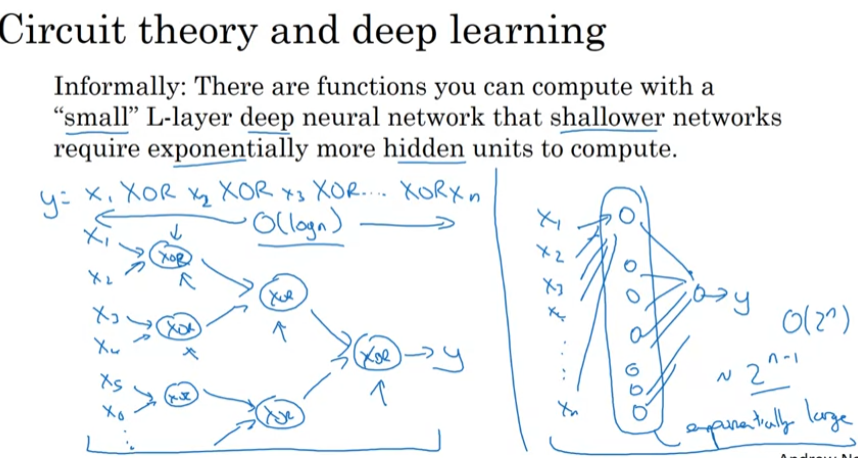 Circuit theory and deep learning
Informally: There are functions you can compute with a
“small” L-layer deep neural network that shallower networks
require exponentially more hidden units to compute.
y= x1 XOR x2 XOR x3 XOR.... XOR xn
O(log n)
x1
XOR
x2
x3
XOR
x4
XOR
x5
XOR
x6
XOR
XOR
y
x1
x2
x3
x4
xn
y
O(2^n)
~ 2^(n-1)
exponentially large